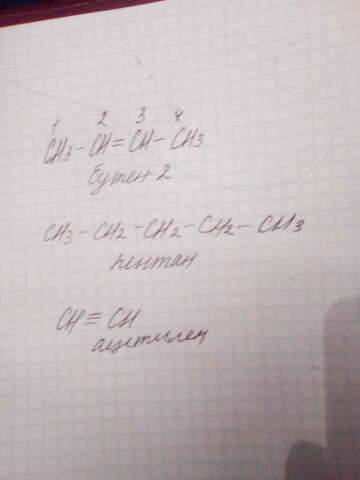 1 2 3 4
CH3 - CH = CH - CH3
бутен-2
CH3 - CH2 - CH2 - CH2 - CH3
пентан
CH ≡ CH
ацетилен